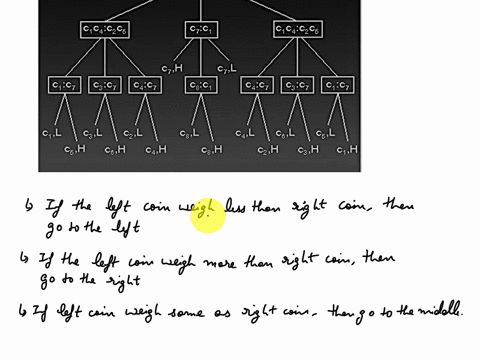 c₁c₄:c₂c₅ c₇:c₁ c₁c₄:c₂c₅
c₇,H c₇,L
c₁:c₇ c₃:c₇ c₄:c₇ c₈:c₁ c₄:c₇ c₃:c₇ c₁:c₇
c₁,L c₃,L c₂,L c₈,L c₄,L c₆,L c₅,L
c₅,H c₆,H c₄,H c₈,H c₂,H c₃,H c₁,H
↳ If the left coin weigh less than right coin, then
go to the left
↳ If the left coin weigh more than right coin, then
go to the right
↳ If left coin weigh same as right coin, then go to the middle.